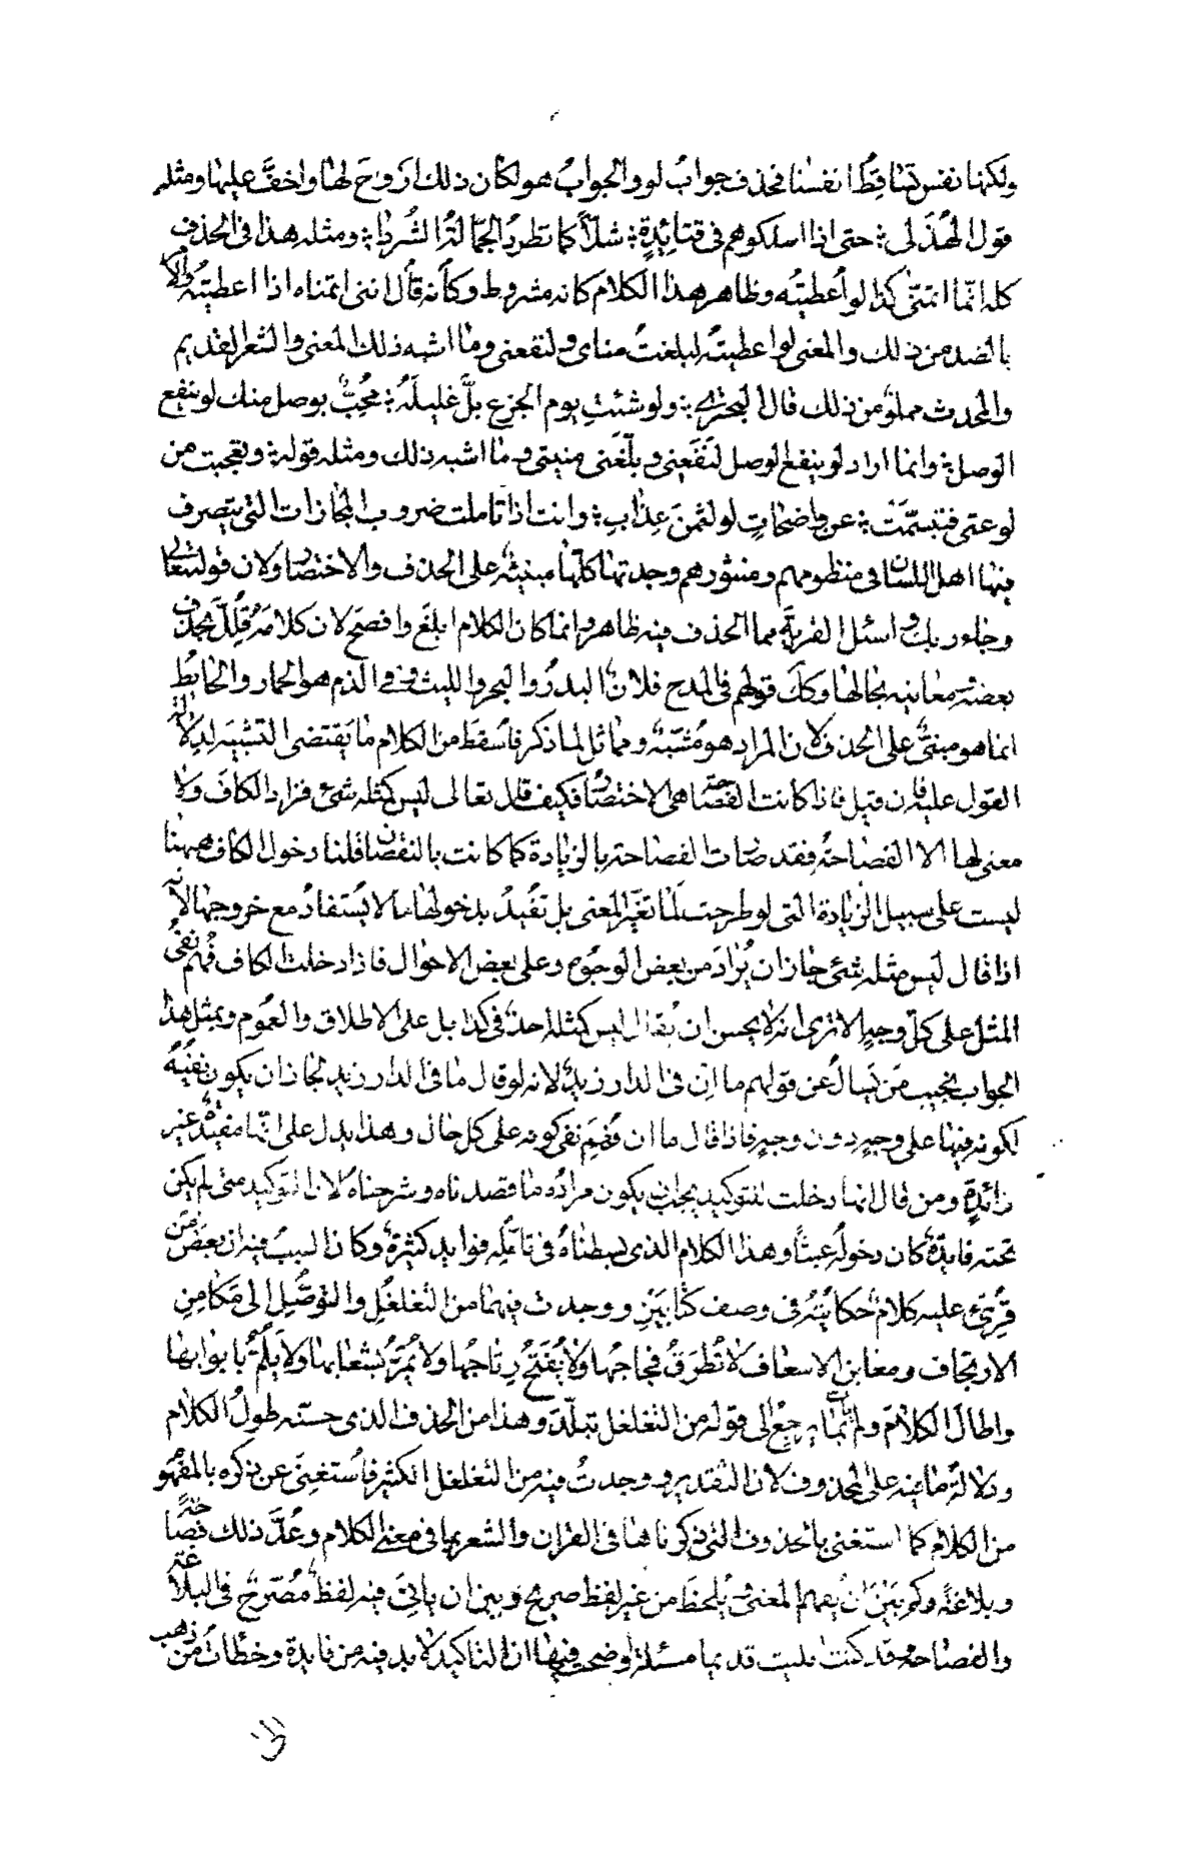 ولكنها نفس تساقط انفسنا فحذف جواب لو والجواب هو لكان ذلك اروح لها واخف عليها ومثله
قول الهذلي حتى اذا اسلكوهم في قتائدة شلا كما تطرد الجمالة الشردا ومثله هذا في الحذف
كله انما اتمنى كذا لو اعطيته وظاهر هذا الكلام كانه مشروط وكأنه قال انني اتمناه اذا اعطيته والا
بالضد من ذلك والمعنى لو اعطيته لبلغت مناى ولنفعنى وما اشبه ذلك المعنى والشعر القديم
والمحدث مملو من ذلك قال البحترى ولو شئت يوم الجزع بل غليله محب بوصل منك لو ينفع
الوصل وانما اراد لو ينفع الوصل لنفعنى وبلغنى منيتى وما اشبه ذلك ومثله قوله وتعجبت من
لوعتى فتبسمت عن واضحات لو لثمن عذاب وانت اذا تاملت ضروب المجازات التي يتصرف
فيها اهل اللسان في منظومهم ومنثورهم وجدتها كلها مبنية على الحذف والاختصار لان قوله تعالى
وجاء ربك واسئل القرية مما الحذف فيه ظاهر وانما كان الكلام ابلغ وافصح لان كلامه قلل بحذف
بعضه ومعانيه بحالها وكك قولهم في المدح فلان البدر والبحر والليث وفي الذم هو الحمار والحايط
انما هو مبنى على الحذف لان المراد هو مشبه ومماثل لما ذكر فاسقط من الكلام ما يقتضى التشبيه لدلالة
القول عليه فان قيل فاذا كانت الفصاحة هي الاختصار فكيف قال تعالى ليس كمثله شئ فزاد الكاف ولا
معنى لها الا الفصاحة فقد صات الفصاحة بالزيادة كما كانت بالنقصان قلنا دخول الكاف ههنا
ليست على سبيل الزيادة التي لو طرحت لما تغير المعنى بل تفيد بدخولها ما لا يستفاد مع خروجها لانه
اذا قال ليس مثله شئ جاز ان يراد من بعض الوجوه وعلى بعض الاحوال فاذا دخلت الكاف فهم نفى
المثل على كل وجه الا ترى انه لا يحسن ان يقال ليس كمثله احد في كذا بل على الاطلاق والعموم وبمثل هذا
الجواب نجيب من يسال عن قولهم ما ان في الدار زيد لانه لو قال ما في الدار زيد لجاز ان يكون نفيه
لكونه فيها على وجه دون وجه فاذا قال ما ان فهم نفى كونه على كل حال وهذا يدل على انها مفيدة غير
زائدة ومن قال انها دخلت للتوكيد يجب ان يكون مراده ما قصدناه وشرحناه لان التوكيد متى لم يكن
تحته فايدة كان دخوله عبثا وهذا الكلام الذى بسطناه في تامله فوايد كثيرة وكان السبب فيه ان بعض من
قرئ عليه كلام حكايته في وصف كتابين ووجدت فيهما من التغلغل والتوصل الى مكامن
الارتجاف ومغابن الاسعاف لا تطرق فجاجها ولا يفتح رتاجها ولا يمر بشعابها ولا يلم بابوابها
واطال الكلام ولم يات بما يرجع الى قوله من التغلغل تبلد وهذا من الحذف الذى حسنه طول الكلام
ودلالة ما فيه على المحذوف لان التقدير ووجدت فيه من التغلغل الكثير فاستغنى عن ذكره بالمفهو
من الكلام كما استغنى بالحذوف التي ذكرناها في القران والشعر بما في معنى الكلام وعد ذلك فصاحة
وبلاغة وكم بين ان يفهم المعنى ويلحظ من غير لفظ صريح وبين ان ياتى فيه لفظ مصرح في البلاغة
والفصاحة وقد كنت مليت قديما مسئلة اوضحت فيها ان التاكيد لا بد فيه من فايدة وخطأت من ذهب
الى